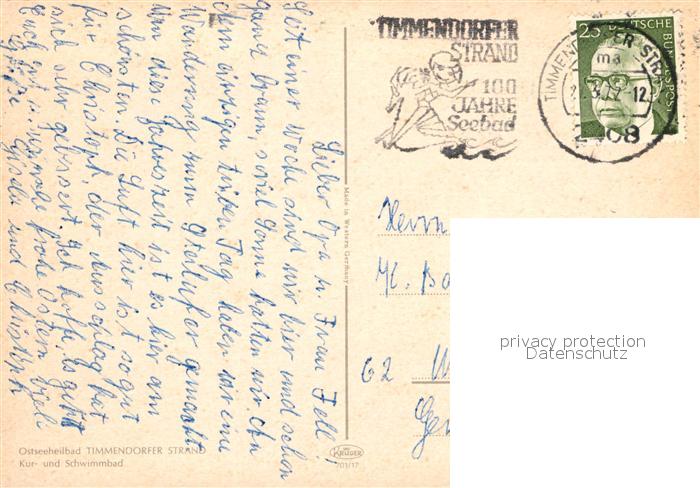 TIMMENDORFER
STRAND
100
JAHRE
Seebad
25
DEUTSCHE BUNDESPOST
TIMMENDORFER STRAND
12
2408
Lieber Opa u. Frau Fell!
Seit einer Woche sind wir hier und schon
ganz braun, soviel Sonne hatten wir. An
dem einzigen trüben Tag haben wir eine
Wanderung zum Steilufer gemacht.
Um diese Jahreszeit ist es hier am
schönsten. Die Luft hier ist so gut
für Christoph, der Ausschlag hat
sich sehr gebessert. Ich hoffe, es geht
Euch gut u. wünsche frohe Ostern. Viele
Grüße Gisela und Christoph
Made in Western Germany
Herrn
62
Ostseeheilbad TIMMENDORFER STRAND
Kur- und Schwimmbad
KRÜGER
701/17
privacy protection
Datenschutz